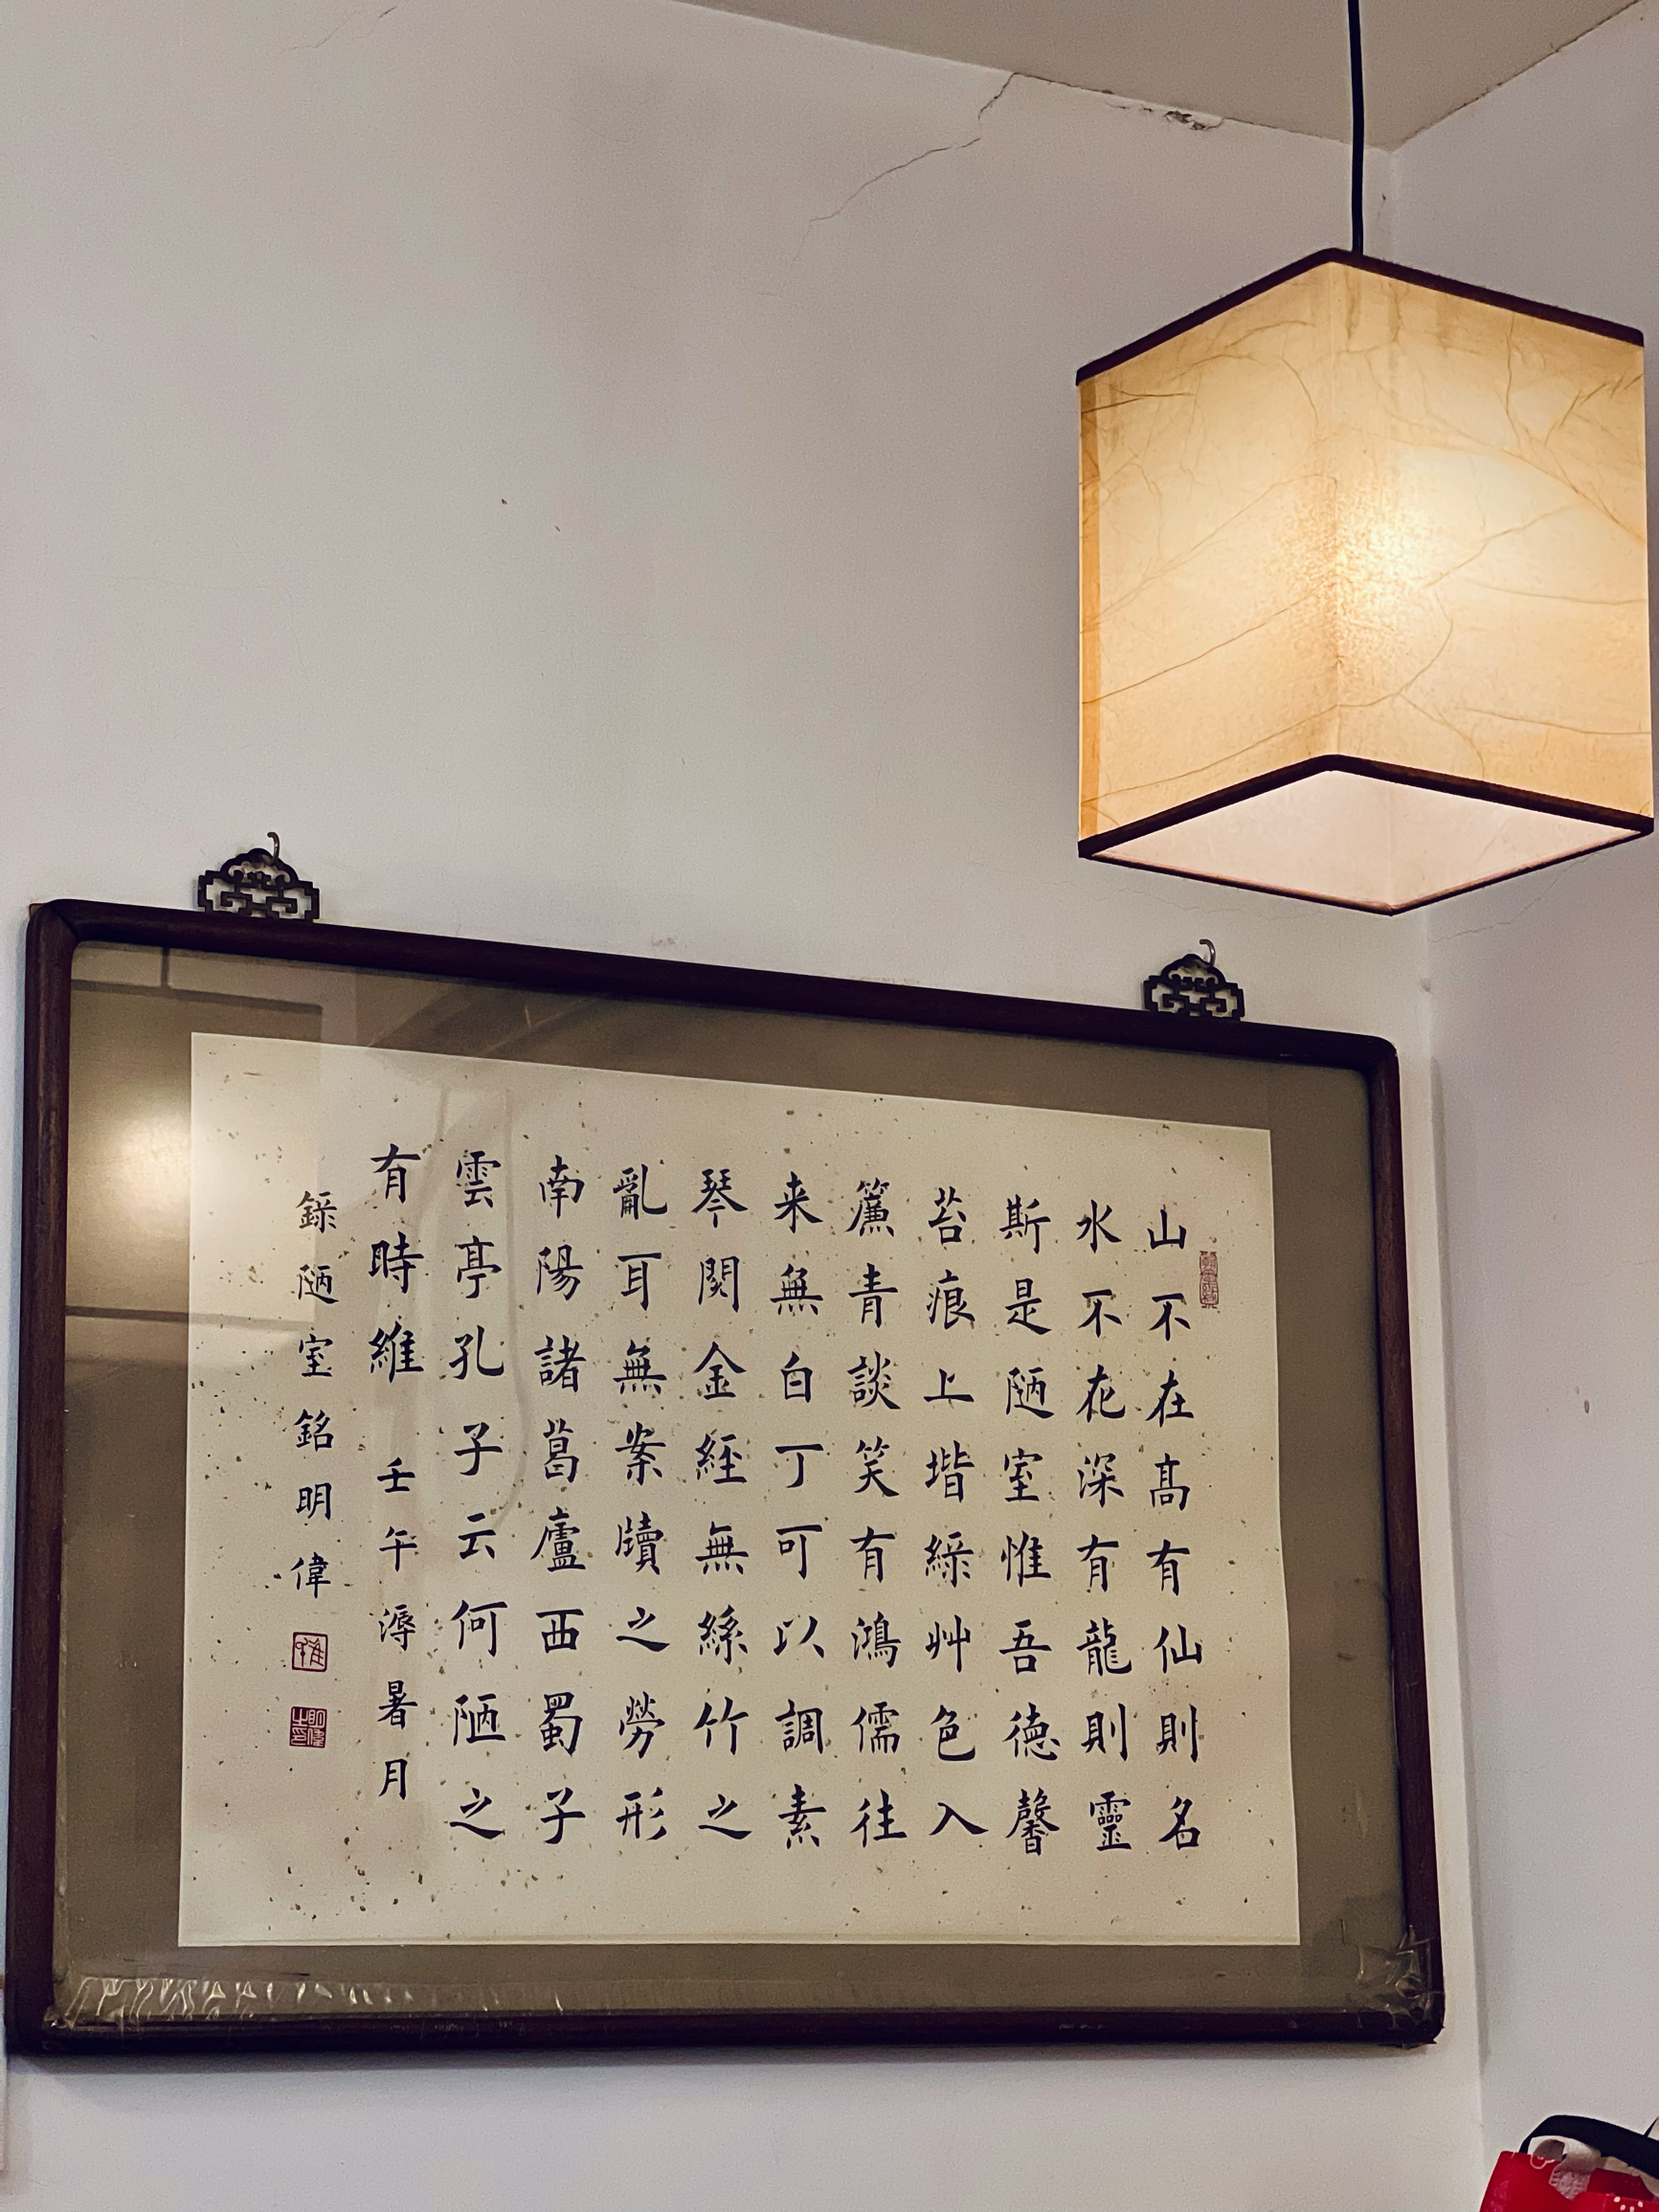 山不在高有仙則名
水不在深有龍則靈
斯是陋室惟吾德馨
苔痕上堦綠艸色入
簾青談笑有鴻儒往
来無白丁可以調素
琴閱金經無絲竹之
亂耳無案牘之勞形
南陽諸葛廬西蜀子
雲亭孔子云何陋之
有時維 壬午溽暑月
錄陋室銘明偉